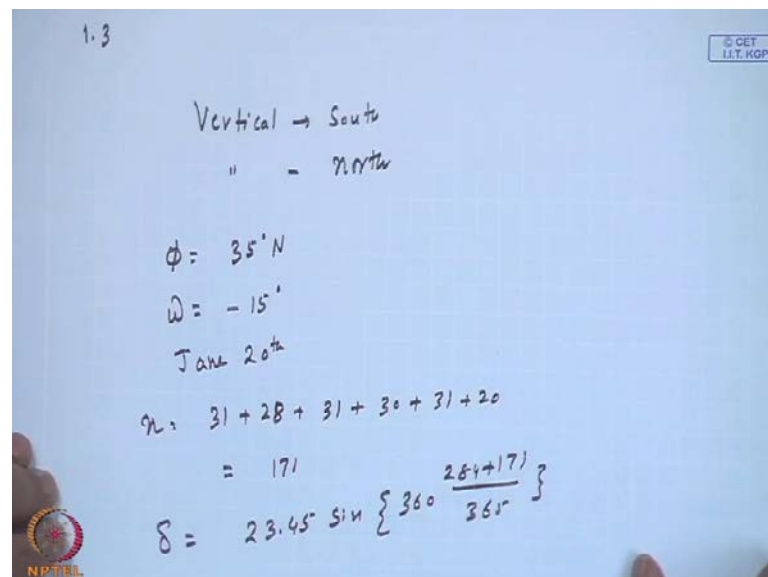 1.3
© CET
I.I.T. KGP
Vertical → South
" - north
Φ = 35° N
ω = - 15°
June 20th
n = 31 + 28 + 31 + 30 + 31 + 20
= 171
δ = 23.45 sin { 360 (284+171)/365 }
NPTEL